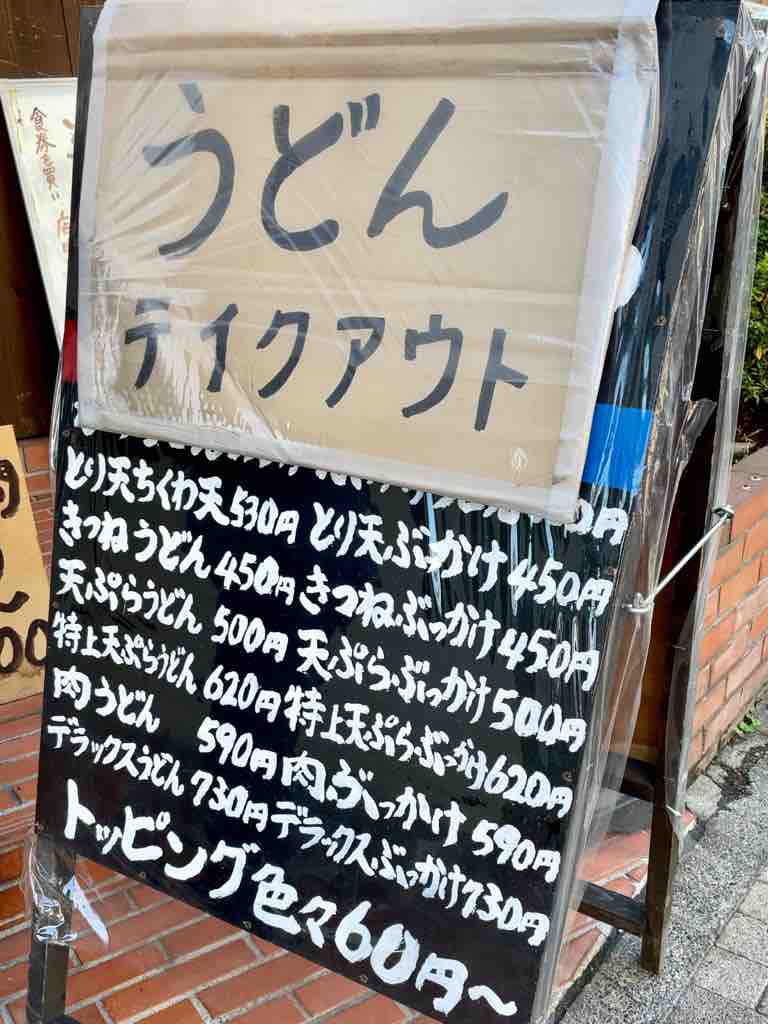 うどん
テイクアウト
とり天ちくわ天 530円 とり天ぶっかけ 450円
きつねうどん 450円 きつねぶっかけ 450円
天ぷらうどん 500円 天ぷらぶっかけ 500円
特上天ぷらうどん 620円 特上天ぷらぶっかけ 620円
肉うどん 590円 肉ぶっかけ 590円
デラックスうどん 730円 デラックスぶっかけ 730円
トッピング色々60円〜
食券を買い